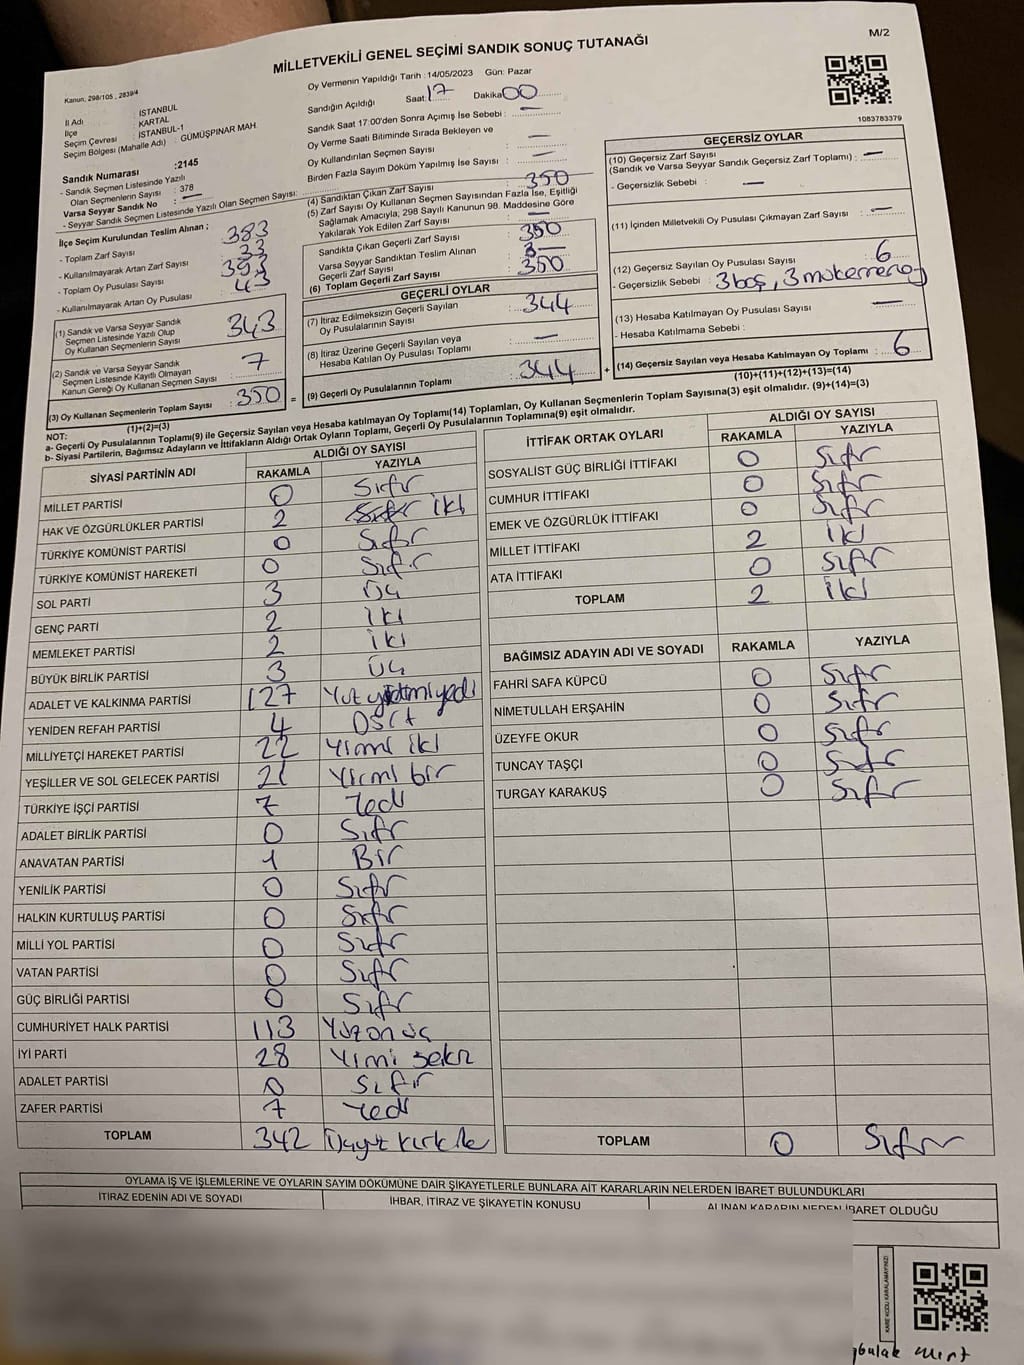 M/2
MİLLETVEKİLİ GENEL SEÇİMİ SANDIK SONUÇ TUTANAĞI
Kanun, 298/105 , 2839/4
İl Adı : İSTANBUL
İlçe : KARTAL
Seçim Çevresi : İSTANBUL-1
Seçim Bölgesi (Mahalle Adı) : GÜMÜŞPINAR MAH
Sandık Numarası :2145
- Sandık Seçmen Listesinde Yazılı
Olan Seçmenlerin Sayısı : 378
Varsa Seyyar Sandık No : —
- Seyyar Sandık Seçmen Listesinde Yazılı Olan Seçmen Sayısı:
İlçe Seçim Kurulundan Teslim Alınan ;
- Toplam Zarf Sayısı : 383
- Kullanılmayarak Artan Zarf Sayısı : 33
- Toplam Oy Pusulası Sayısı : 393
- Kullanılmayarak Artan Oy Pusulası : 43
(1) Sandık ve Varsa Seyyar Sandık
Seçmen Listesinde Yazılı Olup
Oy Kullanan Seçmenlerin Sayısı : 343
(2) Sandık ve Varsa Seyyar Sandık
Seçmen Listesinde Kayıtlı Olmayan
Kanun Gereği Oy Kullanan Seçmen Sayısı : 7
(3) Oy Kullanan Seçmenlerin Toplam Sayısı : 350
(1)+(2)=(3)
Oy Vermenin Yapıldığı Tarih : 14/05/2023 Gün: Pazar
Sandığın Açıldığı Saat 17 Dakika 00
Sandık Saat 17:00'den Sonra Açımış İse Sebebi : —
Oy Verme Saati Bitiminde Sırada Bekleyen ve
Oy Kullandırılan Seçmen Sayısı : —
Birden Fazla Sayım Döküm Yapılmış İse Sayısı : —
(4) Sandıktan Çıkan Zarf Sayısı : 350
(5) Zarf Sayısı Oy Kullanan Seçmen Sayısından Fazla İse, Eşitliği
Sağlamak Amacıyla, 298 Sayılı Kanunun 98. Maddesine Göre
Yakılarak Yok Edilen Zarf Sayısı : —
Sandıkta Çıkan Geçerli Zarf Sayısı : 350
Varsa Seyyar Sandıktan Teslim Alınan
Geçerli Zarf Sayısı : —
(6) Toplam Geçerli Zarf Sayısı : 350
GEÇERLİ OYLAR
(7) İtiraz Edilmeksizin Geçerli Sayılan
Oy Pusulalarının Sayısı : 344
(8) İtiraz Üzerine Geçerli Sayılan veya
Hesaba Katılan Oy Pusulası Toplamı : —
= (9) Geçerli Oy Pusulalarının Toplamı : 344 +
1083783379
GEÇERSİZ OYLAR
(10) Geçersiz Zarf Sayısı
(Sandık ve Varsa Seyyar Sandık Geçersiz Zarf Toplamı) : —
- Geçersizlik Sebebi : —
(11) İçinden Milletvekili Oy Pusulası Çıkmayan Zarf Sayısı : —
(12) Geçersiz Sayılan Oy Pusulası Sayısı : 6
- Geçersizlik Sebebi : 3 boş, 3 mükerrer oy
(13) Hesaba Katılmayan Oy Pusulası Sayısı : —
- Hesaba Katılmama Sebebi :
(14) Geçersiz Sayılan veya Hesaba Katılmayan Oy Toplamı : 6
(10)+(11)+(12)+(13)=(14)
NOT:
a- Geçerli Oy Pusulalarının Toplamı(9) ile Geçersiz Sayılan veya Hesaba katılmayan Oy Toplamı(14) Toplamları, Oy Kullanan Seçmenlerin Toplam Sayısına(3) eşit olmalıdır. (9)+(14)=(3)
b- Siyasi Partilerin, Bağımsız Adayların ve İttifakların Aldığı Ortak Oyların Toplamı, Geçerli Oy Pusulalarının Toplamına(9) eşit olmalıdır.
SİYASİ PARTİNİN ADI ALDIĞI OY SAYISI
RAKAMLA YAZIYLA
MİLLET PARTİSİ 0 Sıfır
HAK VE ÖZGÜRLÜKLER PARTİSİ 2 iki
TÜRKİYE KOMÜNİST PARTİSİ 0 Sıfır
TÜRKİYE KOMÜNİST HAREKETİ 0 Sıfır
SOL PARTİ 3 Üç
GENÇ PARTİ 2 iki
MEMLEKET PARTİSİ 2 iki
BÜYÜK BİRLİK PARTİSİ 3 Üç
ADALET VE KALKINMA PARTİSİ 127 Yüz yirmi yedi
YENİDEN REFAH PARTİSİ 4 Dört
MİLLİYETÇİ HAREKET PARTİSİ 22 Yirmi iki
YEŞİLLER VE SOL GELECEK PARTİSİ 21 Yirmi bir
TÜRKİYE İŞÇİ PARTİSİ 7 Yedi
ADALET BİRLİK PARTİSİ 0 Sıfır
ANAVATAN PARTİSİ 1 Bir
YENİLİK PARTİSİ 0 Sıfır
HALKIN KURTULUŞ PARTİSİ 0 Sıfır
MİLLİ YOL PARTİSİ 0 Sıfır
VATAN PARTİSİ 0 Sıfır
GÜÇ BİRLİĞİ PARTİSİ 0 Sıfır
CUMHURİYET HALK PARTİSİ 113 Yüz on üç
İYİ PARTİ 28 Yirmi sekiz
ADALET PARTİSİ 0 Sıfır
ZAFER PARTİSİ 7 Yedi
TOPLAM 342 Üçyüz kırk iki
İTTİFAK ORTAK OYLARI ALDIĞI OY SAYISI
RAKAMLA YAZIYLA
SOSYALİST GÜÇ BİRLİĞİ İTTİFAKI 0 Sıfır
CUMHUR İTTİFAKI 0 Sıfır
EMEK VE ÖZGÜRLÜK İTTİFAKI 0 Sıfır
MİLLET İTTİFAKI 2 iki
ATA İTTİFAKI 0 Sıfır
TOPLAM 2 iki
BAĞIMSIZ ADAYIN ADI VE SOYADI RAKAMLA YAZIYLA
FAHRİ SAFA KÜPCÜ 0 Sıfır
NİMETULLAH ERŞAHİN 0 Sıfır
ÜZEYFE OKUR 0 Sıfır
TUNCAY TAŞÇI 0 Sıfır
TURGAY KARAKUŞ 0 Sıfır
TOPLAM 0 Sıfır
OYLAMA İŞ VE İŞLEMLERİNE VE OYLARIN SAYIM DÖKÜMÜNE DAİR ŞİKAYETLERLE BUNLARA AİT KARARLARIN NELERDEN İBARET BULUNDUKLARI
İTİRAZ EDENİN ADI VE SOYADI İHBAR, İTİRAZ VE ŞİKAYETİN KONUSU ALINAN KARARIN NEDEN İBARET OLDUĞU
KARE KODU KARALAMAYINIZ!